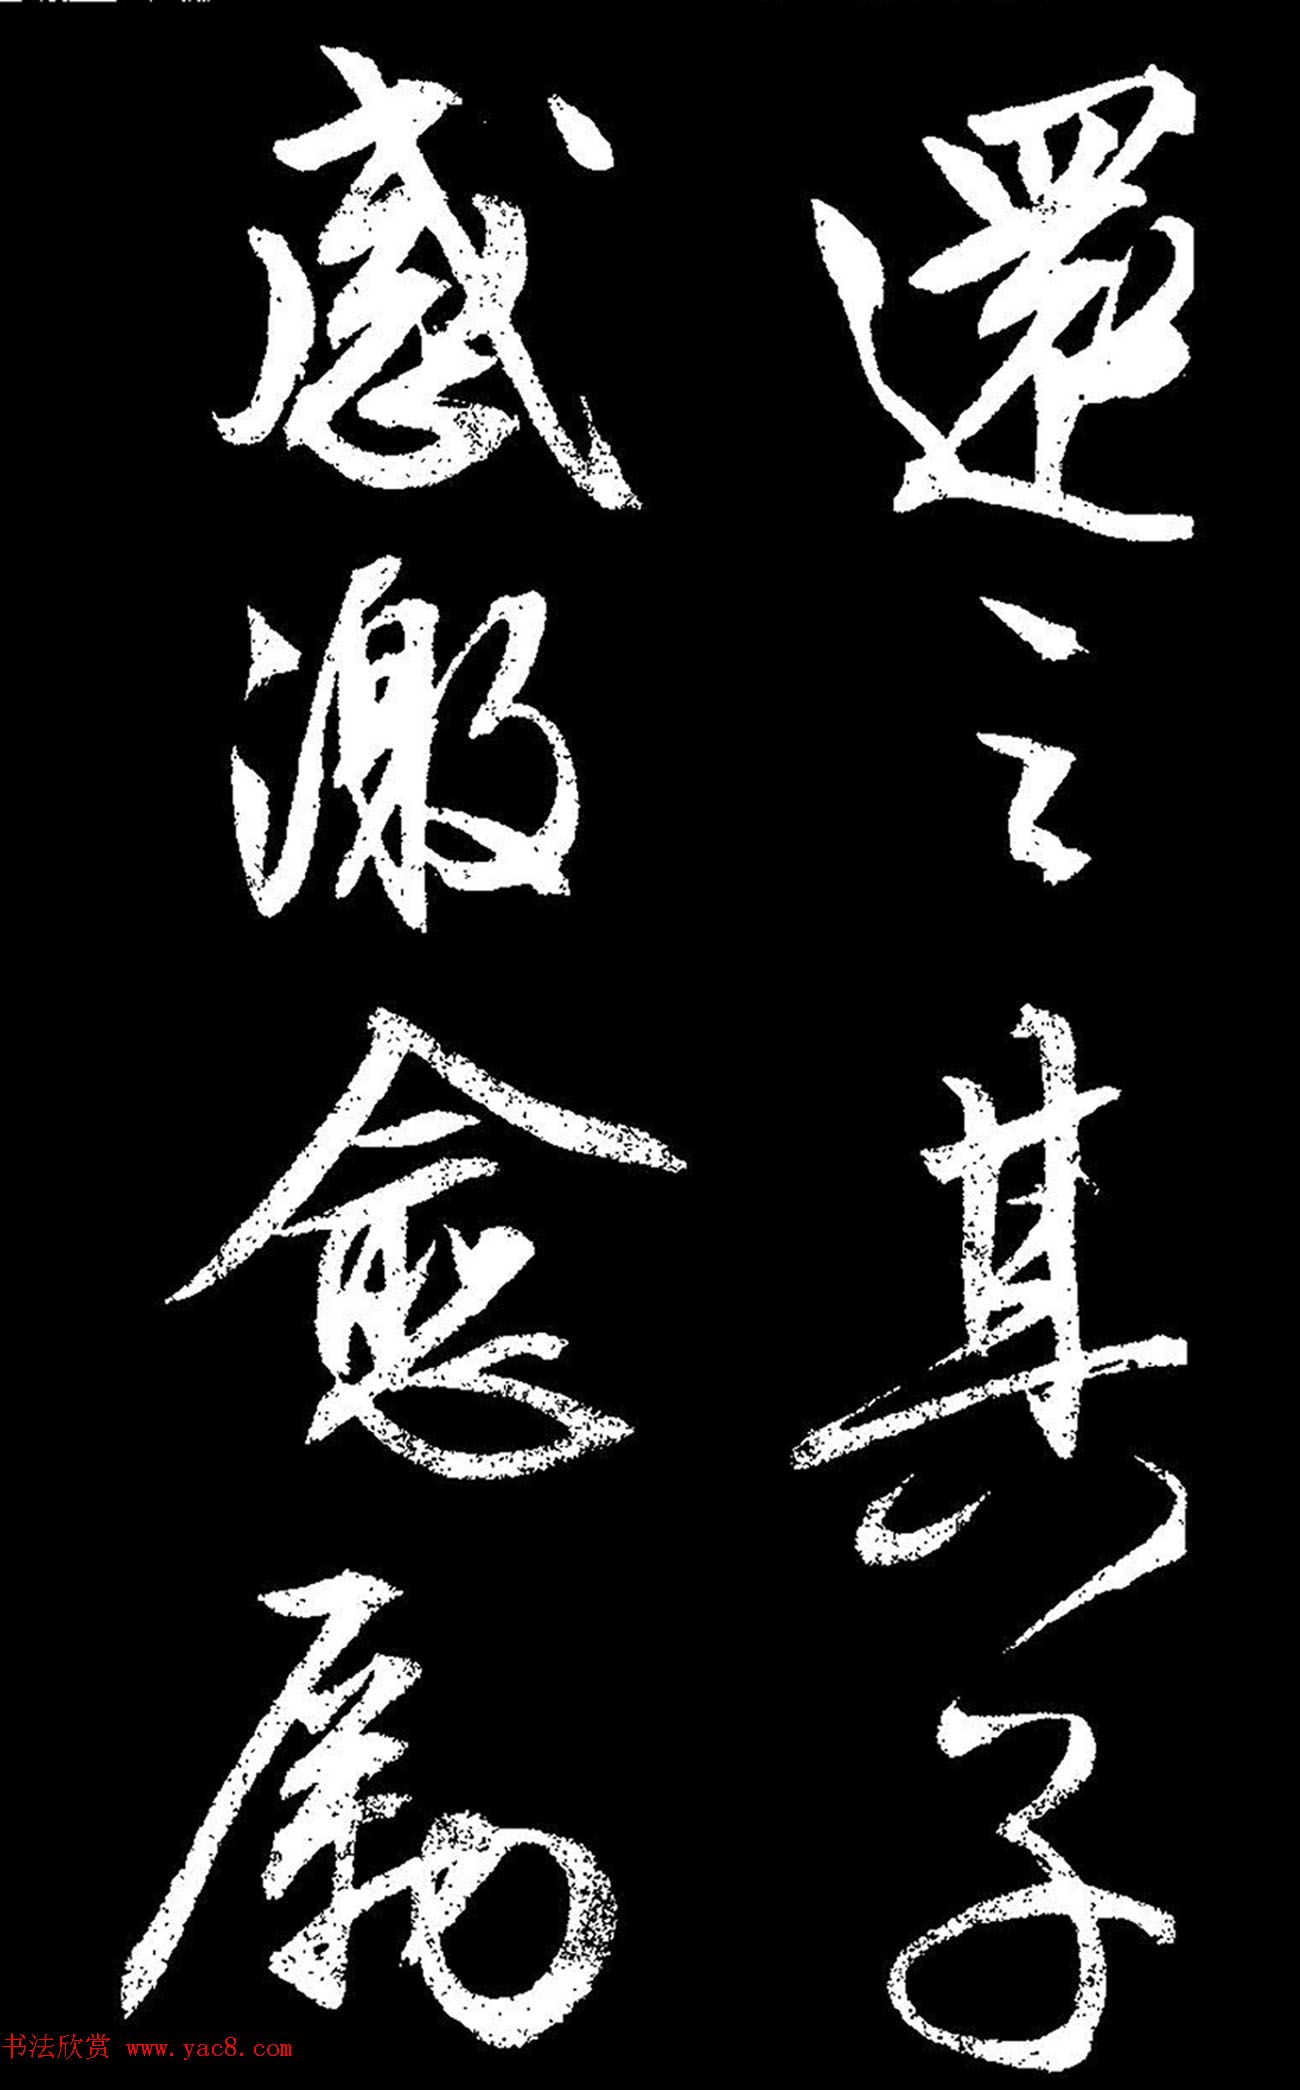 還之其子
感激愈厲
书法欣赏 www.yac8.com